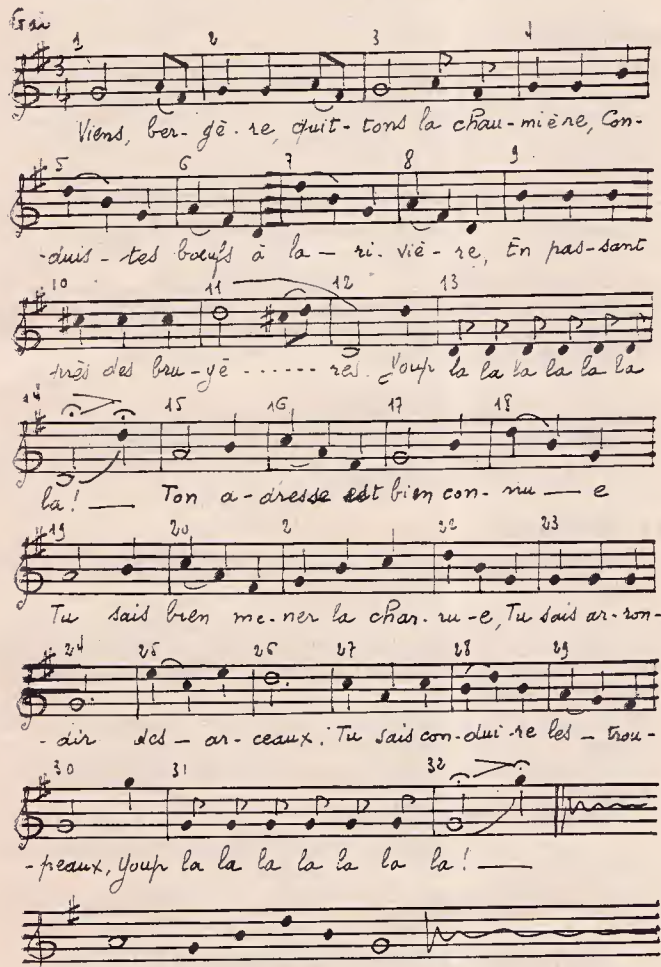 Gai
1 2 3 4
3 4
Viens, ber-gè-re, quit-tons la chau-mière, Con-
5 6 7 8 9
-duis-tes bœufs à la-ri-viè-re, En pas-sant
10 11 12 13
près des bru-yè......res. Youp la la la la la la
14 15 16 17 18
la! — Ton a-dresse est bien con-nu — e
19 20 2 22 23
Tu sais bien me-ner la char-ru-e, Tu sais ar-ron-
24 25 26 27 28 29
-dir des-ar-ceaux. Tu sais con-dui-re les-trou-
30 31 32
-peaux, Youp la la la la la la la! —